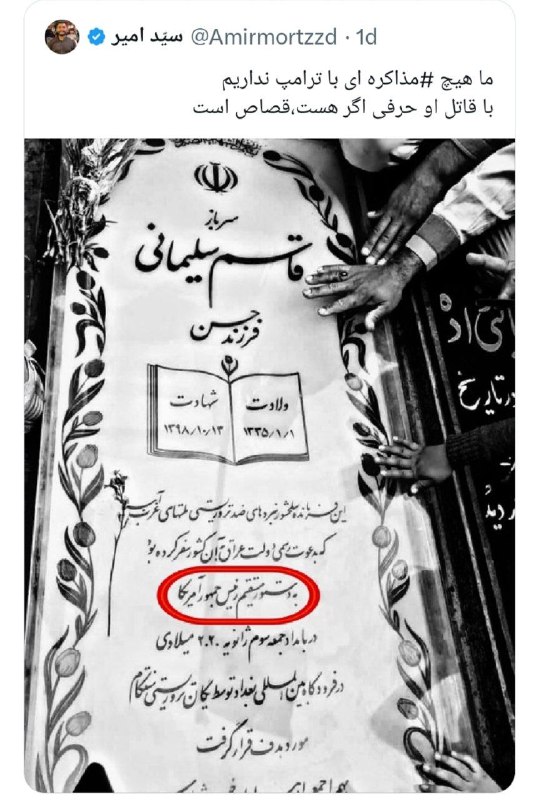 سیّد امیر @Amirmortzzd · 1d
ما هیچ #مذاکره ای با ترامپ نداریم
با قاتل او حرفی اگر هست،قصاص است
سرباز
قاسم سلیمانی
فرزند حسن
ولادت
۱۳۳۵/۱/۱
شهادت
۱۳۹۸/۱۰/۱۳
این فرمانده سلحشور نبردهای ضد تروریستی ملتهای غرب آسیا
که به دعوت رسمی دولت عراق به آن کشور سفر کرده بود
به دستور مستقیم رئیس جمهور آمریکا
در بامداد جمعه سوم ژانویه ۲۰۲۰ میلادی
در فرودگاه بین المللی بغداد توسط یگان تروریستی سنتکام
مورد هدف قرار گرفت
در تاریخ